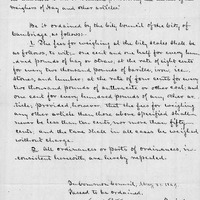 Weighers of Hay and other articles.
Be it ordained by the City Council of the City of
Cambridge as follows:
1. The fees for weighing at the city scales shall be
as follows: at one cent and one half for every hun
dred pounds of hay or straw; at the rate of eight cents
for every two thousand pounds of
stones, and lumber; at the rate of four cents for every
two thousand pounds of anthracite or other coal; and
one cent for every hundred pounds of any other ar
ticle; Provided, however, that the fees for weighing
any other article than those above specified shall
never be less than ten cents, nor more than fifty
cents; and the same shall in all cases be weighed
without charge.
2. All ordinances or parts of ordinances, in
consistent herewith, are hereby repealed.
In Common Council, May
Passed to be ordained.